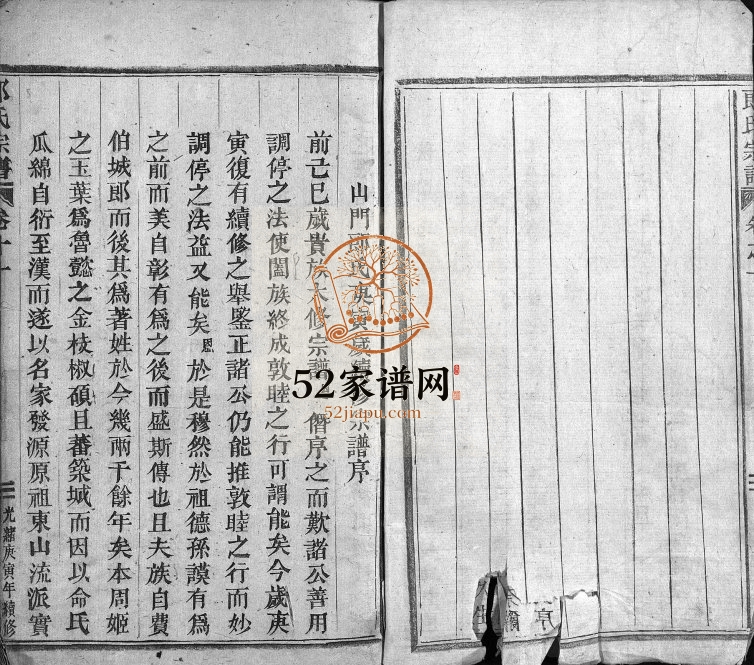 山門郎氏庚寅歲續宗譜序
前己巳歲貴族大修宗譜僭序之而歎諸公善用
調停之法使闔族終成敦睦之行可謂能矣今歲庚
寅復有續修之舉鑒正諸公仍能推敦睦之行而妙
調停之法益又能矣恩於是穆然於祖德孫謨有爲
之前而美自彰有爲之後而盛斯傳也且夫族自費
伯城郎而後其爲著姓於今幾兩千餘年矣本周姬
之玉葉爲魯懿之金枝椒碩且蕃築城而因以命氏
瓜綿自衍至漢而遂以名家發源原祖東山流派實
郎氏宗譜
卷十一
光緒庚寅年續修
郎氏宗譜
序
52家谱网
52jiapu.com